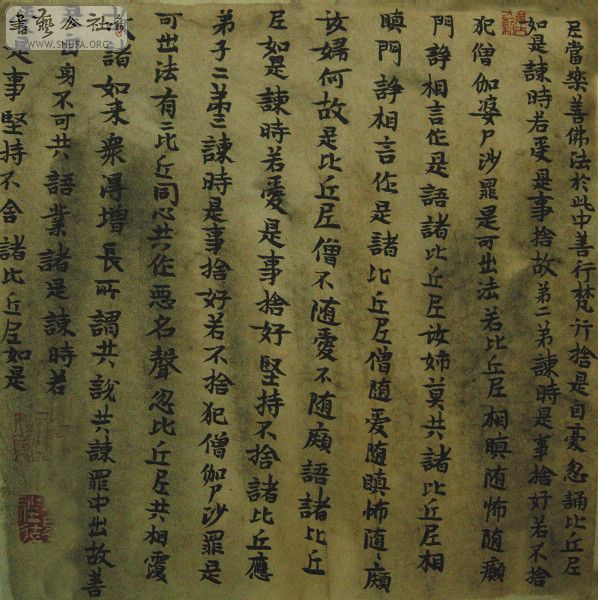 尼當樂善佛法於此中善行梵行捨是因憂忽誦比丘尼
如是諫時若受是事捨故第二第諫時是事捨好若不捨
犯僧伽婆尸沙罪是可出法若比丘尼相瞋随怖随癲
門諍相言作是語諸比丘尼汝姉莫共諸比丘尼相
瞋門諍相言作是諸比丘尼僧随爱随瞋怖随癲
汝婦何故是比丘尼僧不随爱不随癲語諸比丘
尼如是諫時若憂是事捨好堅持不捨諸比丘應
弟子二弟三諫時是事捨好若不捨犯僧伽尸沙罪是
可出法有三比丘同心共作惡名聲忽比丘尼共相覆
諸如来衆淂增長所謂共說共諫罪中出故善
身不可共語業諸是諫時若
是事堅持不舍諸比丘尼如是
書藝公社
WWW.SHUFA.ORG